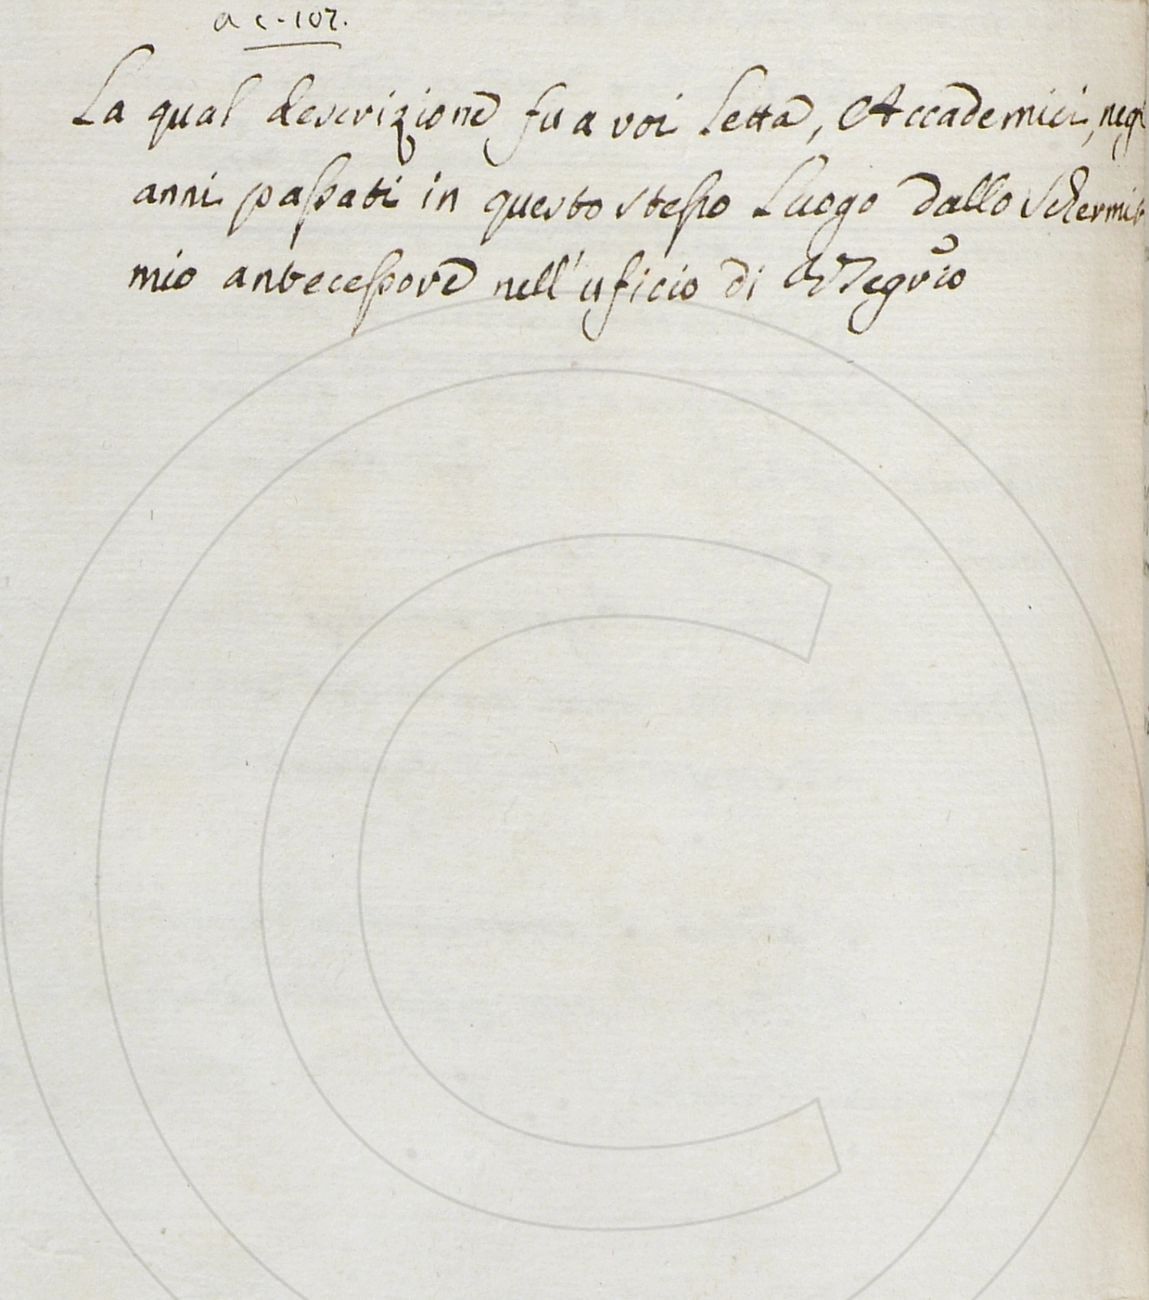 a c. 107.
La qual descrizione fu a voi letta, Accademici, negl
anni passati in questo stesso luogo dallo Schermit
mio antecessore nell'uficio di Segrio